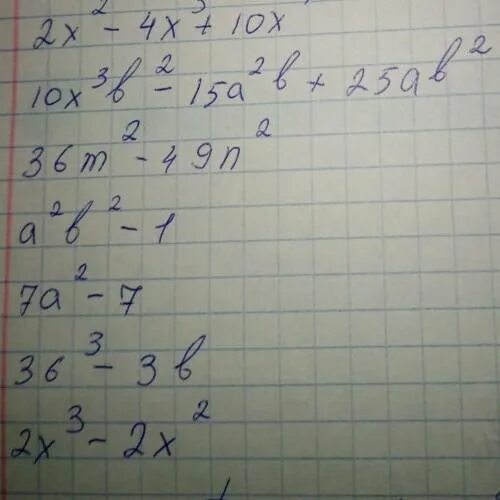 2x² - 4x³ + 10x
10x³b² - 15a²b + 25ab²
36m² - 49n²
a²b² - 1
7a² - 7
3б³ - 3b
2x³ - 2x²